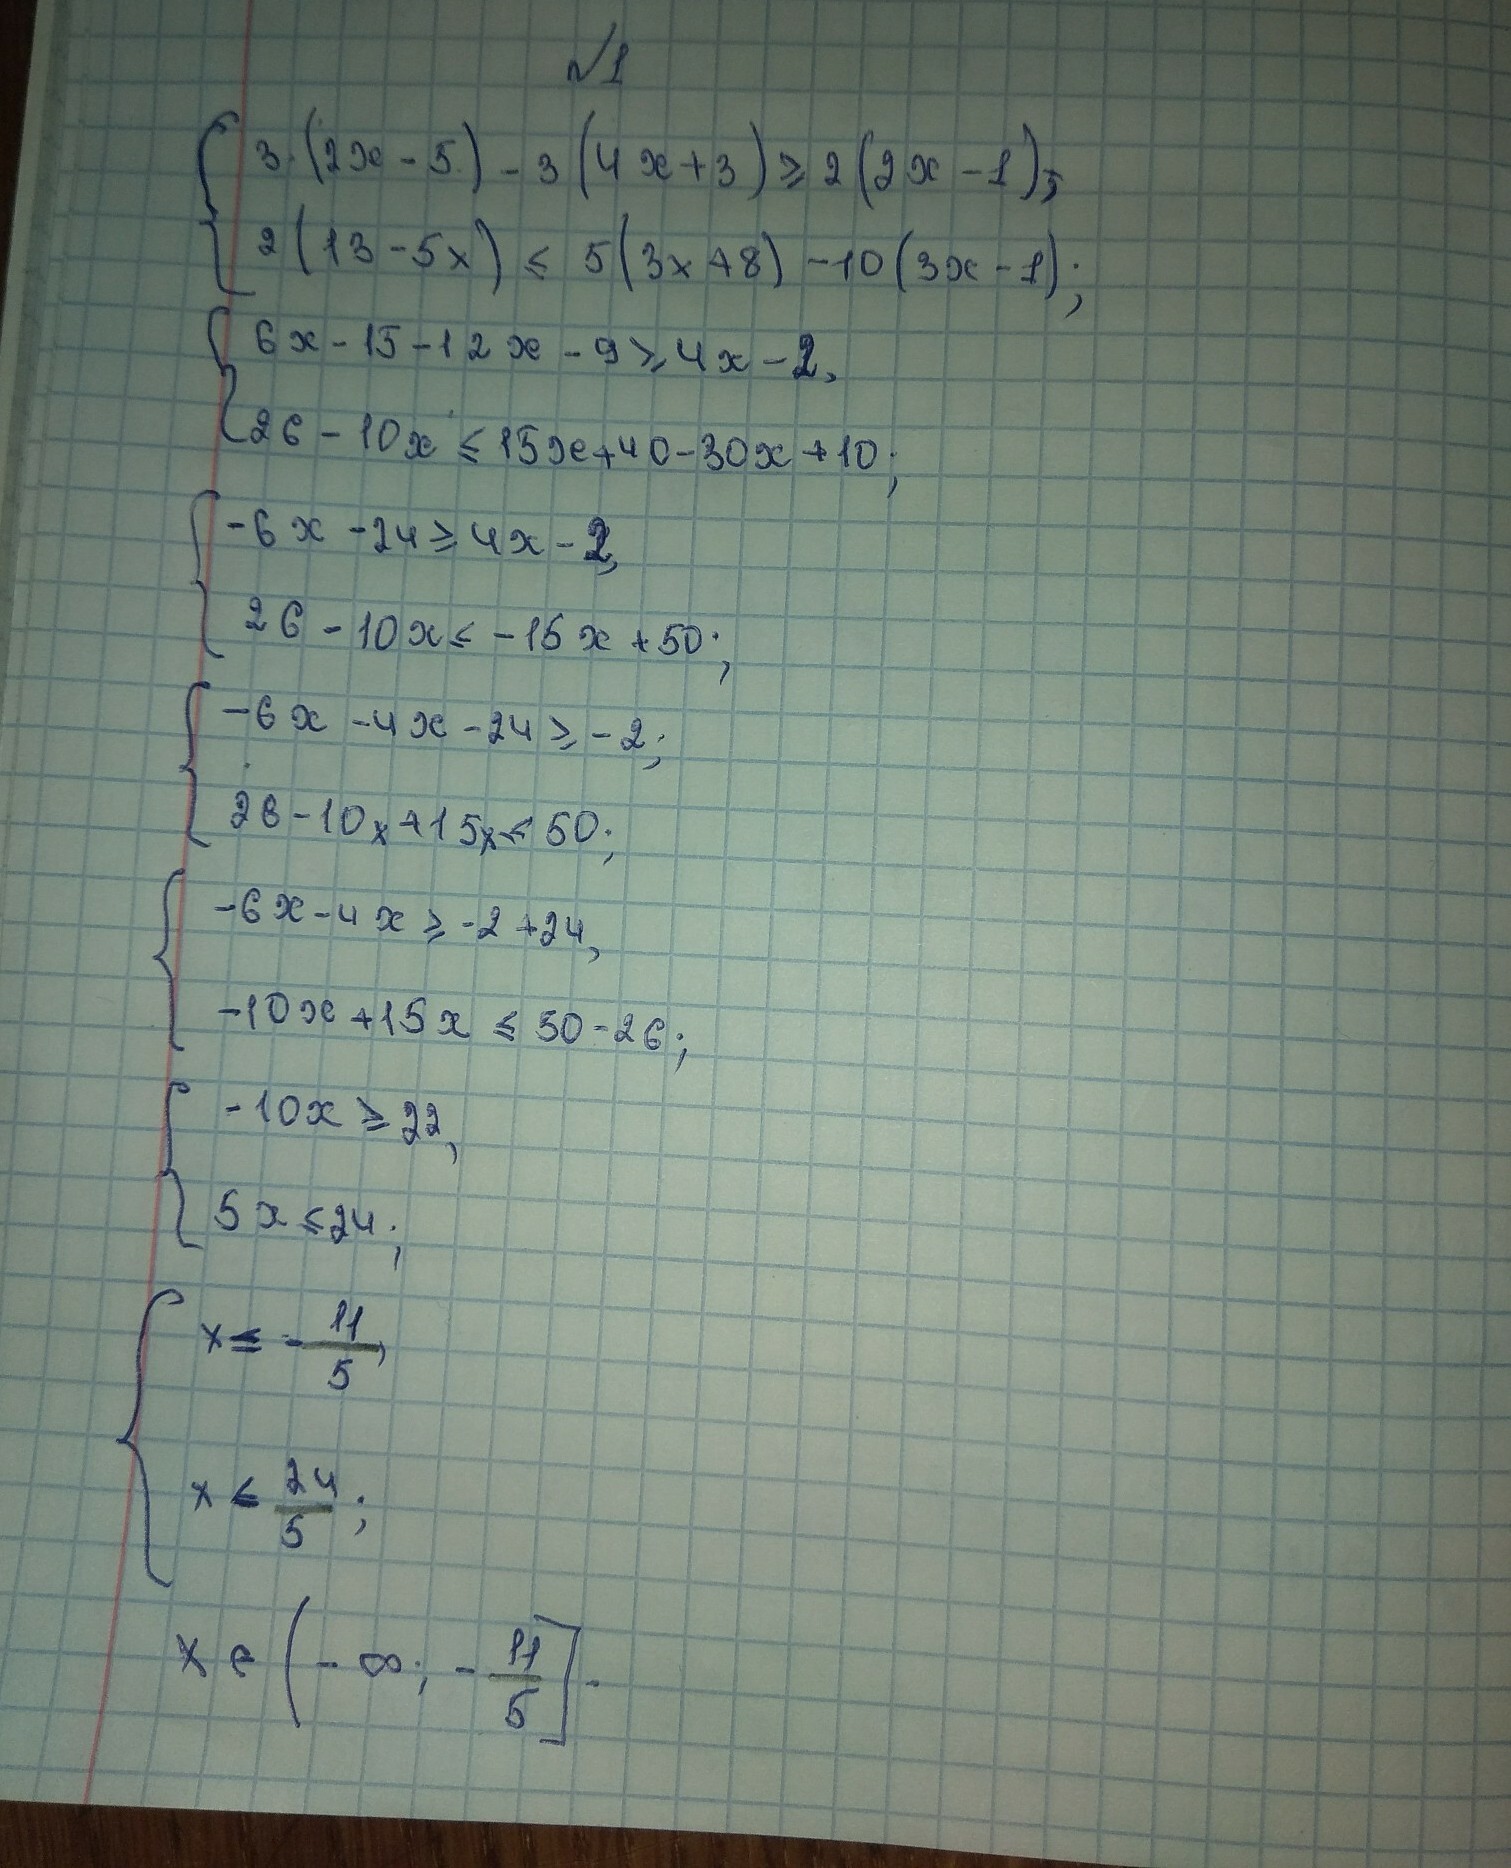 №1
3·(2x-5)-3(4x+3)≥2(2x-1);
2(13-5x)≤5(3x+8)-10(3x-1);
6x-15-12x-9≥4x-2,
26-10x≤15x+40-30x+10;
-6x-24≥4x-2,
26-10x≤-15x+50;
-6x-4x-24≥-2;
26-10x+15x≤50;
-6x-4x≥-2+24,
-10x+15x≤50-26;
-10x≥22,
5x≤24;
x≤-11/5,
x≤24/5;
x∈(-∞;-11/5].